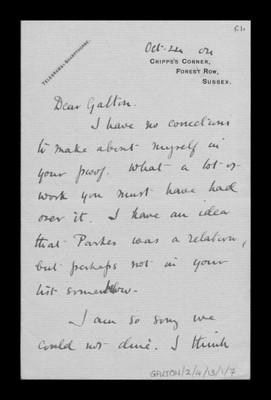 61
TELEGRAMS-SHARPTHORNE.
Oct. 24 04
CRIPPS'S CORNER,
FOREST ROW,
SUSSEX.
Dear Galton.
I have no corrections
to make about myself in
your proof. What a lot of
work you must have had
over it. I have an idea
that Parkes was a relation,
but perhaps not in your
list somehow.
I am so sorry we
could not dine. I think
GALTON/2/4/13/1/7